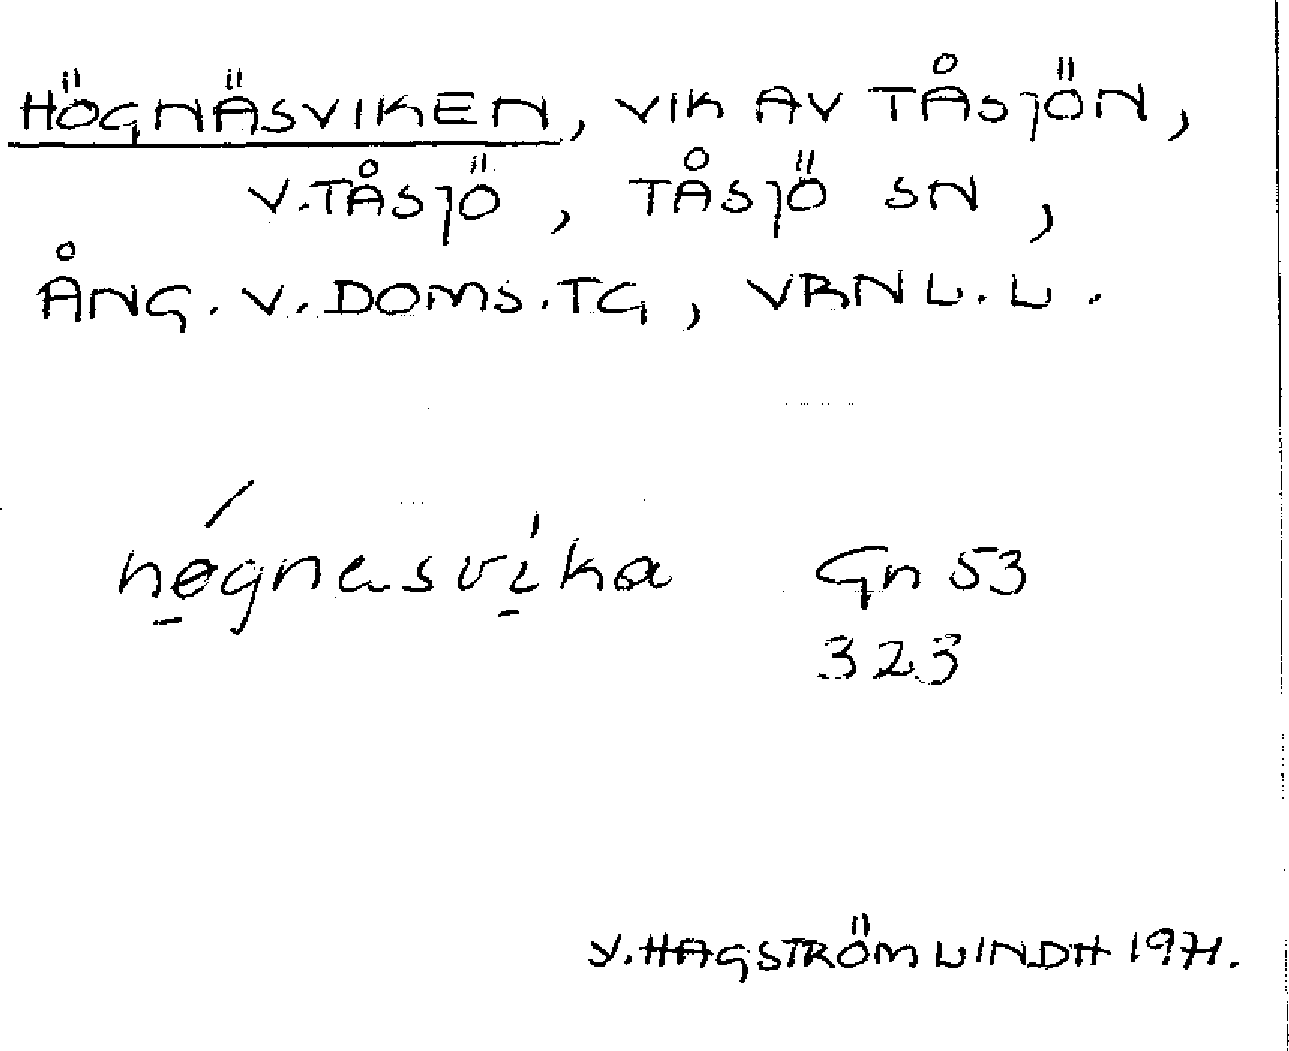 HÖGNÄSVIKEN, VIK AV TÅSJÖN,
V.TÅSJÖ, TÅSJÖ SN,
ÅNG. V. DOMS. TG, VBNL. L.
høgnasvika Gn 53
323
Y. HAGSTRÖM LINDH 1971.